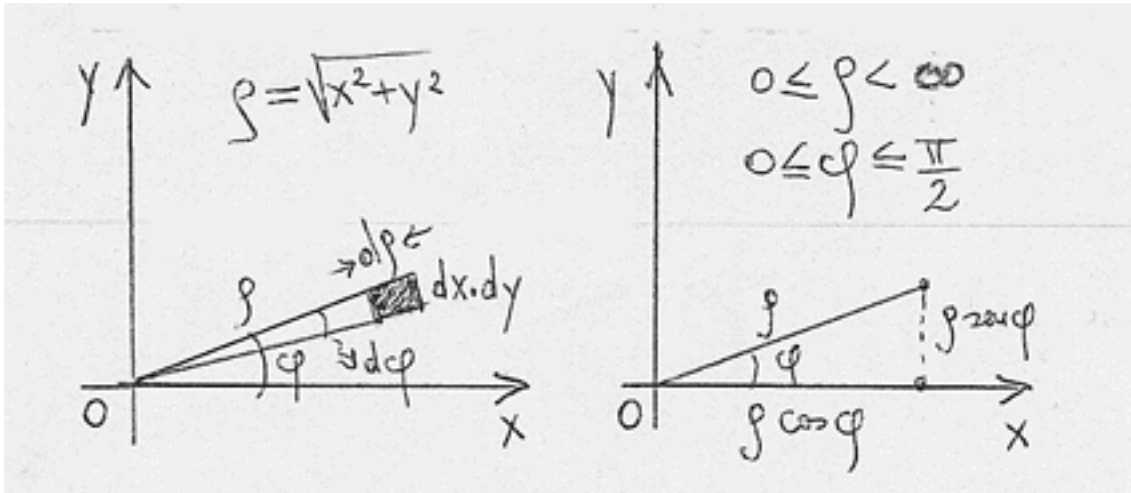 y
ρ=√x²+y²
ρ
dρ
dx.dy
φ
dφ
0
x
y
0≤ρ<∞
0≤φ≤π/2
ρ
φ
ρ sen φ
ρ cos φ
0
x